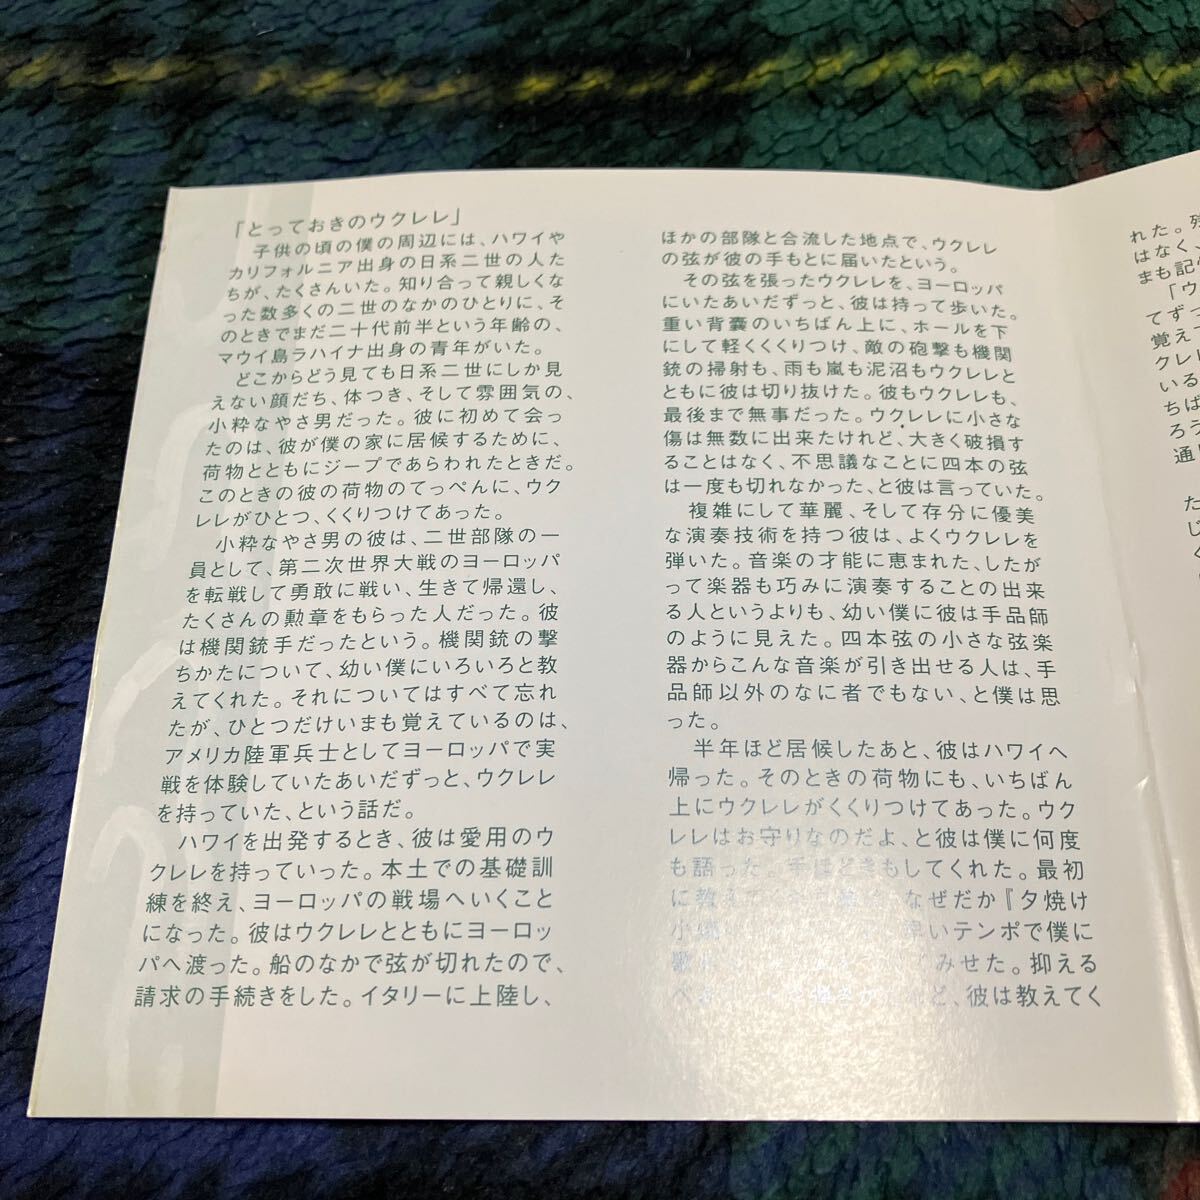 「とっておきのウクレレ」
子供の頃の僕の周辺には、ハワイや
カリフォルニア出身の日系二世の人た
ちが、たくさんいた。知り合って親しくな
った数多くの二世のなかのひとりに、そ
のときでまだ二十代前半という年齢の、
マウイ島ラハイナ出身の青年がいた。
どこからどう見ても日系二世にしか見
えない顔だち、体つき、そして雰囲気の、
小粋なやさ男だった。彼に初めて会っ
たのは、彼が僕の家に居候するために、
荷物とともにジープであらわれたときだ。
このときの彼の荷物のてっぺんに、ウク
レレがひとつ、くくりつけてあった。
小粋なやさ男の彼は、二世部隊の一
員として、第二次世界大戦のヨーロッパ
を転戦して勇敢に戦い、生きて帰還し、
たくさんの勲章をもらった人だった。彼
は機関銃手だったという。機関銃の撃
ちかたについて、幼い僕にいろいろと教
えてくれた。それについてはすべて忘れ
たが、ひとつだけいまも覚えているのは、
アメリカ陸軍兵士としてヨーロッパで実
戦を体験していたあいだずっと、ウクレレ
を持っていた、という話だ。
ハワイを出発するとき、彼は愛用のウ
クレレを持っていった。本土での基礎訓
練を終え、ヨーロッパの戦場へいくこと
になった。彼はウクレレとともにヨーロッ
パへ渡った。船のなかで弦が切れたので、
請求の手続きをした。イタリーに上陸し、
ほかの部隊と合流した地点で、ウクレレ
の弦が彼の手もとに届いたという。
その弦を張ったウクレレを、ヨーロッパ
にいたあいだずっと、彼は持って歩いた。
重い背嚢のいちばん上に、ホールを下
にして軽くくくりつけ、敵の砲撃も機関
銃の掃射も、雨も嵐も泥沼もウクレレと
ともに彼は切り抜けた。彼もウクレレも、
最後まで無事だった。ウクレレに小さな
傷は無数に出来たけれど、大きく破損す
ることはなく、不思議なことに四本の弦
は一度も切れなかった、と彼は言っていた。
複雑にして華麗、そして存分に優美
な演奏技術を持つ彼は、よくウクレレを
弾いた。音楽の才能に恵まれた、したが
って楽器も巧みに演奏することの出来
る人というよりも、幼い僕に彼は手品師
のように見えた。四本弦の小さな弦楽
器からこんな音楽が引き出せる人は、手
品師以外のなに者でもない、と僕は思
った。
半年ほど居候したあと、彼はハワイへ
帰った。そのときの荷物にも、いちばん
上にウクレレがくくりつけてあった。ウク
レレはお守りなのだよ、と彼は僕に何度
も語った。手ほどきもしてくれた。最初
に教え なぜだか『夕焼け
小 テンポで僕に
歌 みせた。抑える
べき ど、彼は教えてく
れた。
はなく、
まも記
「ウ
てずっ
覚え
クレレ
いる
ちば
ろう
通
た
じ
く